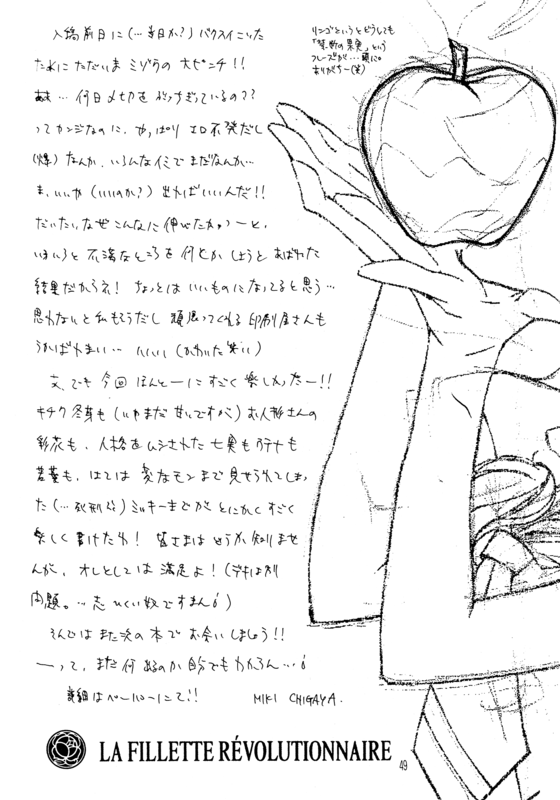 入稿前日に(…当日か?)バクスイこいた
ためにただいま ミゾウの大ピンチ!!
ああ… 何日〆切を ぶっちぎっているの??
ってカンジなのに、やっぱり エロ不発だし
(爆) なんか、いろんなイミでまだなんか…
ま、いいか (いいのか?) 出ればいいんだ!!
だいたいなぜこんなに伸びたかっつーと、
いろいろと 不満なところを何とかしようと あばれた
結果だからネ! ちょっとは いいものに なってると思う…
思わないと私もそうだし 頑張ってくれる 印刷屋さんも
うかばれまい…
でも 今回 ほんとーに すごく 楽しかったー!!
キチク冬芽も (いやまだ甘いですが) お人形さんの
彩衣も、人格をムシされた 七実もアンテナも
若葉も、はては 変なモンまで見せられてしまっ
た (…死刑) ミッキーまでが とにかく すごく
楽しく書けたわ! 皆さまは どうか知りませ
んが、オレとしては 満足よ! (デキは別
問題。…志 ひくい奴ですまん)
そんでは また次の本で お会いしましょう!!
ーって、また何 出るのか 自分でもわからん…
詳細はペーパーにて!! MIKI CHIGAYA.
リンゴというと どうしても
「禁断の果実」という
フレーズが… 頭に
ありがちー(笑)
LA FILLETTE RÉVOLUTIONNAIRE
49